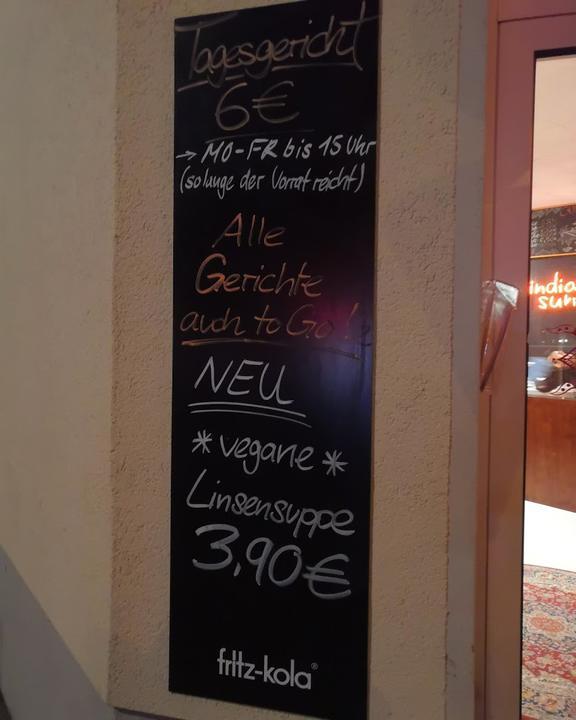 Tagesgericht
6€
→ MO-FR bis 15 Uhr
(solange der Vorrat reicht)
Alle
Gerichte
auch to Go!
NEU
* vegane *
Linsensuppe
3,90€
fritz-kola®
india
sum